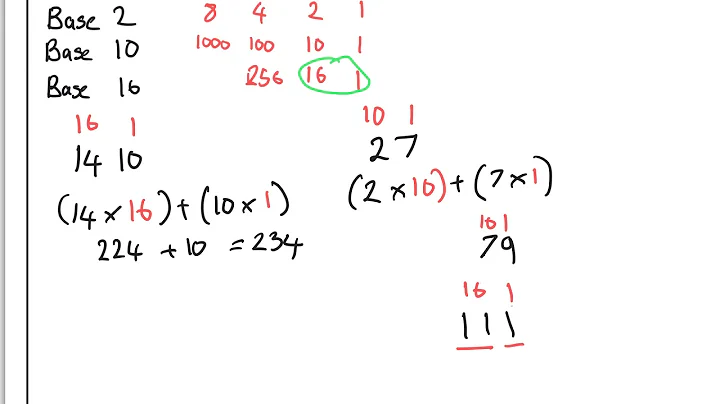 Base 2 8 4 2 1
Base 10 1000 100 10 1
Base 16 256 16 1
16 1
14 10
(14 × 16) + (10 × 1)
224 + 10 = 234
10 1
27
(2 × 10) + (7 × 1)
10 1
79
16 1
111